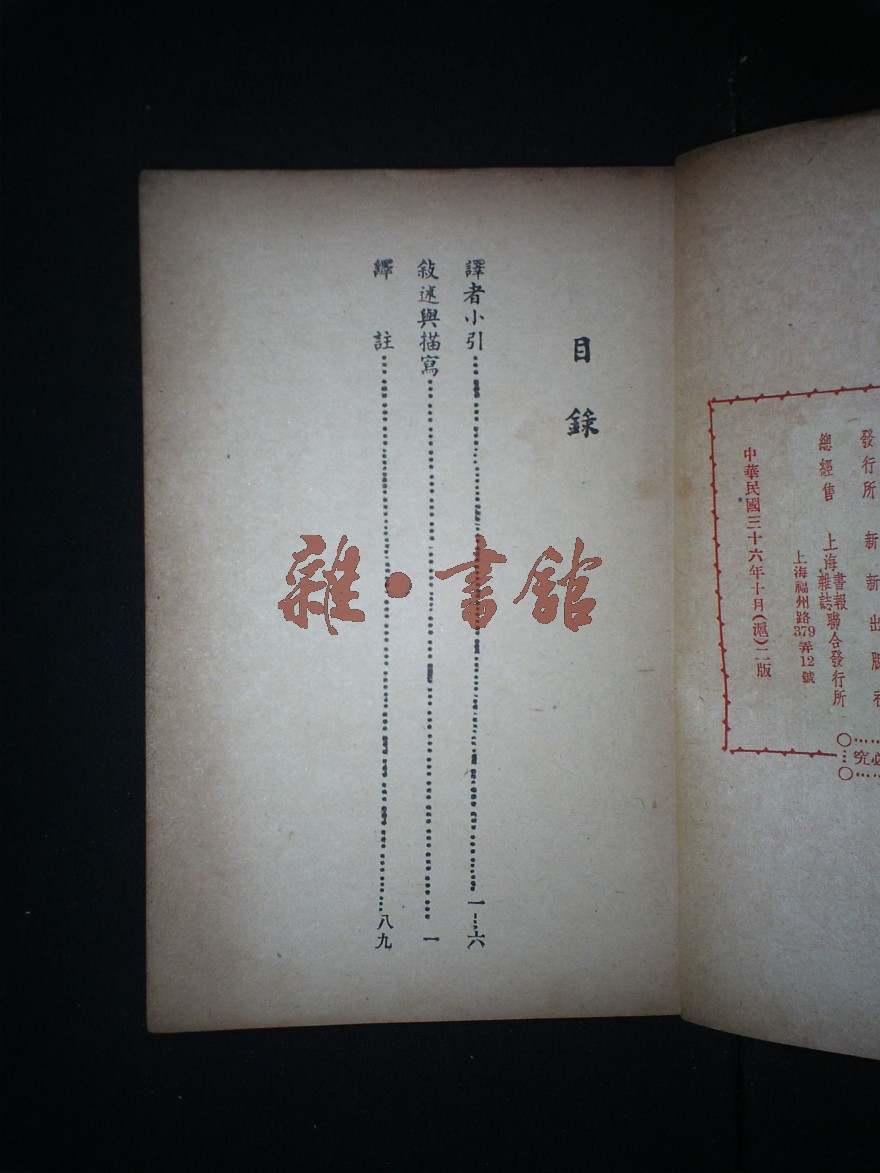 發行所 新新出版社
總經售 上海書報雜誌聯合發行所
上海福州路379弄12號
中華民國三十六年十月(滬)二版
必究
目錄
譯者小引……一—六
敍述與描寫……一
繹註……八九
雜·書館